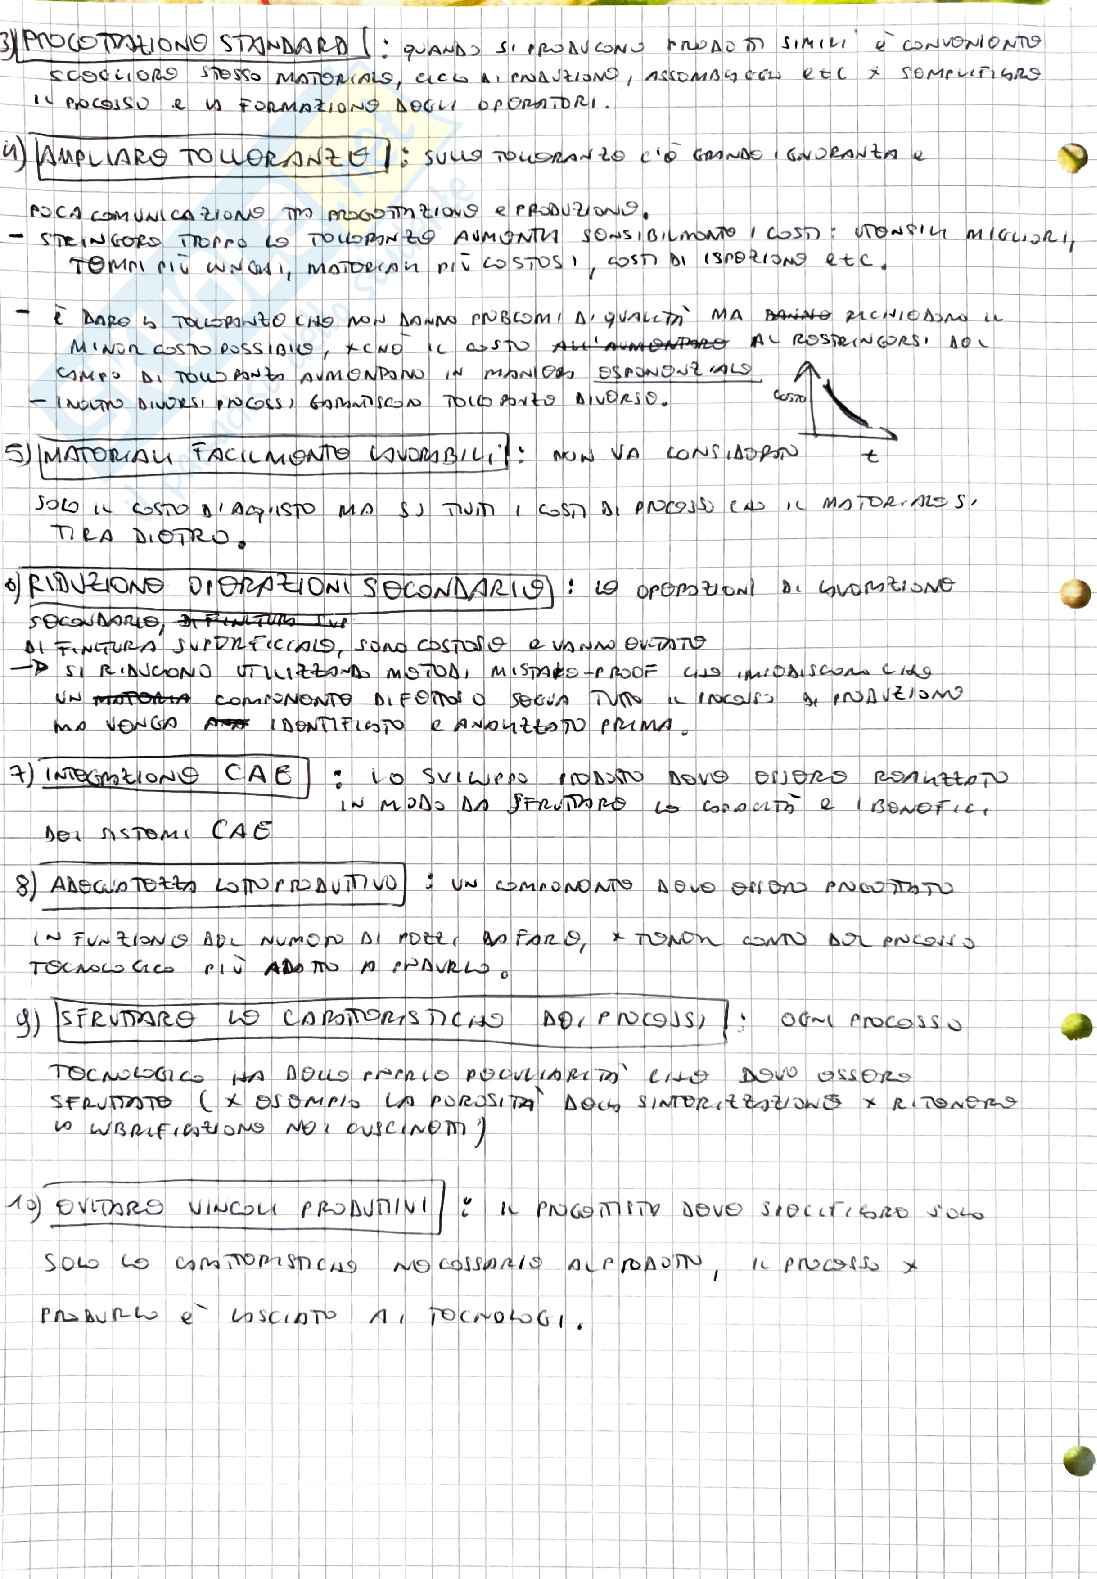 3) PROGETTAZIONE STANDARD : QUANDO SI PRODUCONO PRODOTTI SIMILI È CONVENIENTE
SCEGLIERE STESSO MATERIALE, CICLO DI PRODUZIONE, ASSEMBLAGGIO etc x SEMPLIFICARE
IL PROCESSO E LA FORMAZIONE DEGLI OPERATORI.
4) AMPLIARE TOLLERANZE : SULLE TOLLERANZE C'È GRANDE IGNORANZA e
POCA COMUNICAZIONE TRA PROGETTAZIONE e PRODUZIONE.
- STRINGERE TROPPO LE TOLLERANZE AUMENTA SENSIBILMENTE I COSTI: UTENSILI MIGLIORI,
TEMPI PIÙ LUNGHI, MATERIALI PIÙ COSTOSI, COSTI DI ISPEZIONE etc.
- È DARE LE TOLLERANZE CHE NON DANNO PROBLEMI DI QUALITÀ MA DANNO RICHIEDONO IL
MINOR COSTO POSSIBILE, xCHÈ IL COSTO ALL'AUMENTARE AL RESTRINGERSI DEL
CAMPO DI TOLLERANZA AUMENTANO IN MANIERA ESPONENZIALE
- INOLTRE DIVERSI PROCESSI GARANTISCON TOLLERANZE DIVERSE.
COSTO
t
5) MATERIALI FACILMENTE LAVORABILI : NON VA CONSIDERATO
SOLO IL COSTO D'ACQUISTO MA SI TUTTI I COSTI DI PROCESSO CHE IL MATERIALE SI
TIRA DIETRO.
6) RIDUZIONE OPERAZIONI SECONDARIE : LE OPERAZIONI DI LAVORAZIONE
SECONDARIE, DI FINITURA SUP
DI FINITURA SUPERFICIALE, SONO COSTOSE E VANNO EVITATE
→ SI RIDUCONO UTILIZZANDO METODI MISTAKE-PROOF CHE IMPEDISCONO CHE
UN MATERIA COMPONENTE DIFETTOSO SEGUA TUTTO IL PROCESSO DI PRODUZIONE
MA VENGA IDENTIFICATO E ANALIZZATO PRIMA.
7) INTEGRAZIONE CAE : LO SVILUPPO PRODOTTO DEVE ESSERE REALIZZATO
IN MODO DA SFRUTTARE LE CAPACITÀ E I BENEFICI
DEI SISTEMI CAE
8) ADEGUATEZZA LOTTO PRODUTTIVO : UN COMPONENTE DEVE ESSERE PROGETTATO
IN FUNZIONE DEL NUMERO DI PEZZI DA FARE, x TENER CONTO DEL PROCESSO
TECNOLOGICO PIÙ ADATTO A PRODURLO.
9) SFRUTTARE LE CARATTERISTICHE DEI PROCESSI : OGNI PROCESSO
TECNOLOGICO HA DELLE PROPRIE PECULIARITÀ CHE DEVE ESSERE
SFRUTTATE (x ESEMPIO LA POROSITÀ DELLA SINTERIZZAZIONE x RITENERE
LA LUBRIFICAZIONE NEI CUSCINETTI)
10) EVITARE VINCOLI PRODUTTIVI : IL PROGETTISTA DEVE SPECIFICARE SOLO
SOLO LE CARATTERISTICHE NECESSARIE AL PRODOTTO, IL PROCESSO x
PRODURLO È LASCIATO AI TECNOLOGI.